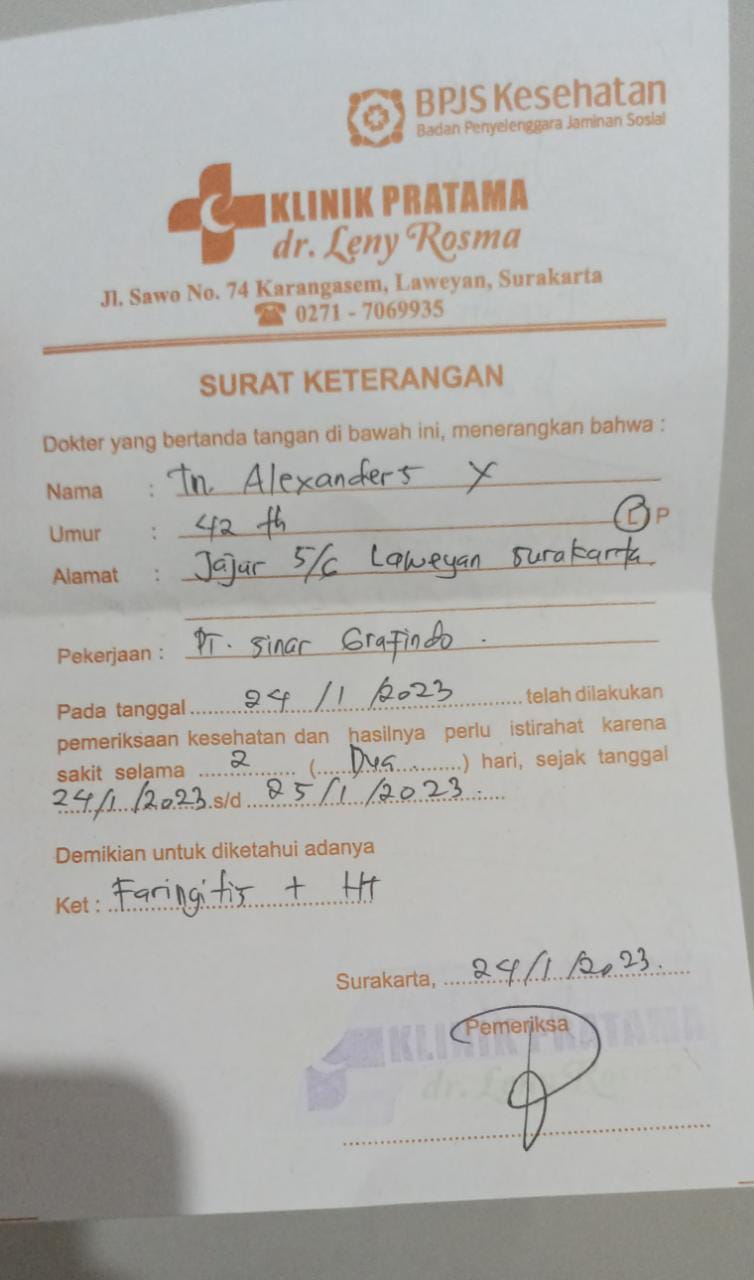 BPJS Kesehatan
Badan Penyelenggara Jaminan Sosial
KLINIK PRATAMA
dr. Leny Rosma
Jl. Sawo No. 74 Karangasem, Laweyan, Surakarta
☎ 0271 - 7069935
SURAT KETERANGAN
Dokter yang bertanda tangan di bawah ini, menerangkan bahwa :
Nama : Tn. Alexanders Y
Umur : 42 th L P
Alamat : Jajar 5/6 Laweyan Surakarta.
Pekerjaan : PT. Sinar Grafindo.
Pada tanggal 24/1/2023 telah dilakukan
pemeriksaan kesehatan dan hasilnya perlu istirahat karena
sakit selama 2 (Dua) hari, sejak tanggal
24/1/2023 s/d 25/1/2023.
Demikian untuk diketahui adanya
Ket : Faringitis + HT
Surakarta, 24/1/2023.
Pemeriksa
KLINIK PRATAMA
dr. Leny Rosma